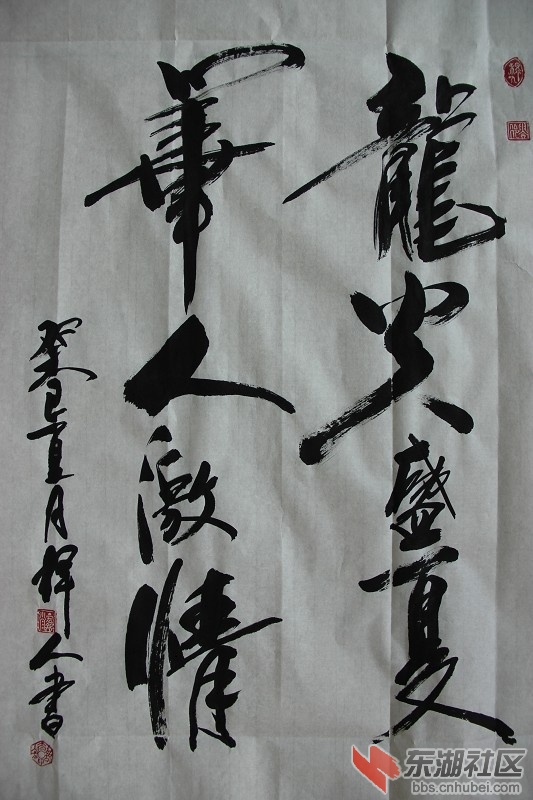 龍炎盛夏
華人激情
癸巳夏月人書
东湖社区
bbs.cnhubei.com